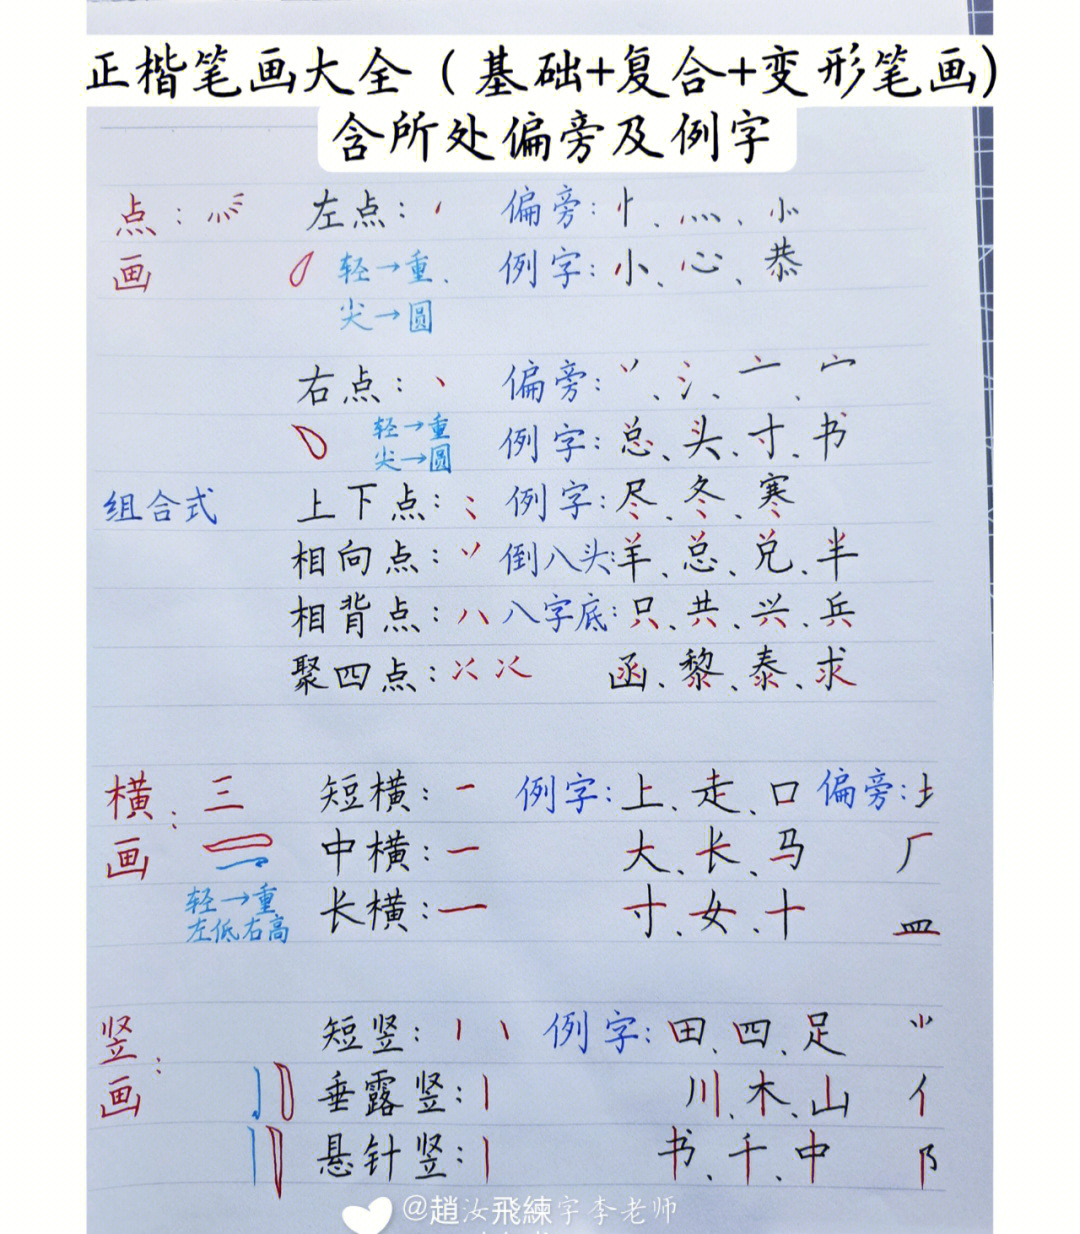 正楷笔画大全（基础+复合+变形笔画)
含所处偏旁及例字
点画： 左点： 偏旁：忄、灬、⺗
轻→重、 例字：小、心、恭
尖→圆
右点：丶 偏旁：丷、氵、亠、宀
轻→重 例字：总、头、寸、书
尖→圆
组合式 上下点： 例字：尽、冬、寒
相向点：丷 倒八头：羊、总、兑、半
相背点：八 八字底：只、共、兴、兵
聚四点： 函、黎、泰、求
横画：三 短横：一 例字：上、走、口 偏旁：土
中横：一 大、长、马 厂
轻→重 长横：一 寸、女、十 罒
左低右高
竖画： 短竖： 例字：田、四、足 ⺌
垂露竖：丨 川、木、山 亻
悬针竖：丨 书、千、中 阝
@趙汝飛練字李老师